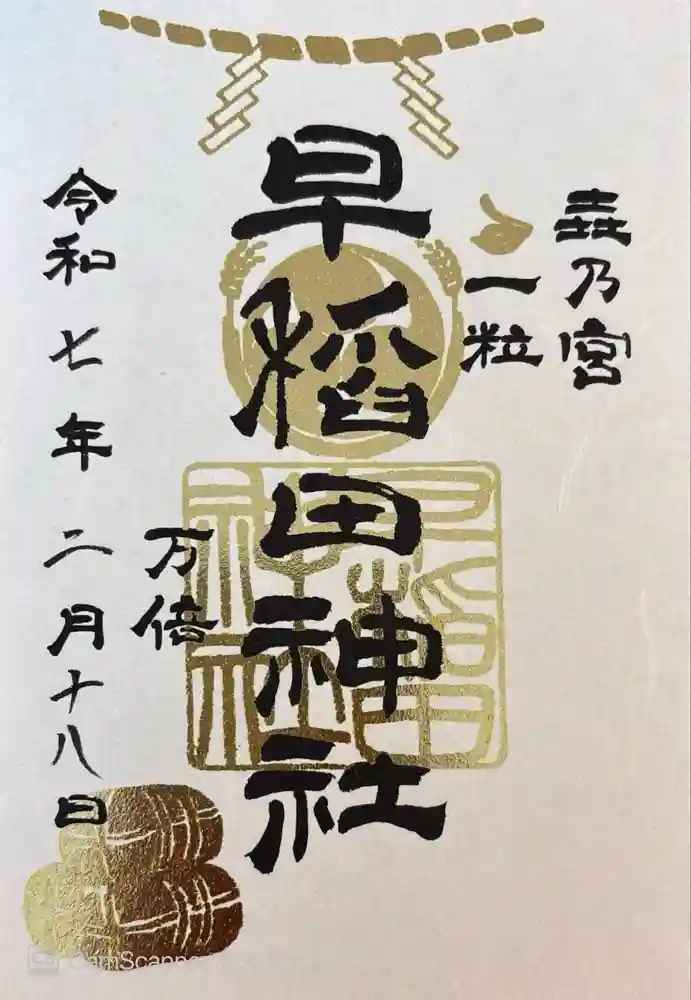 乃宮
一粒
早稲田神社
万倍
令和七年二月十八日
早稲田
神社
CamScanner